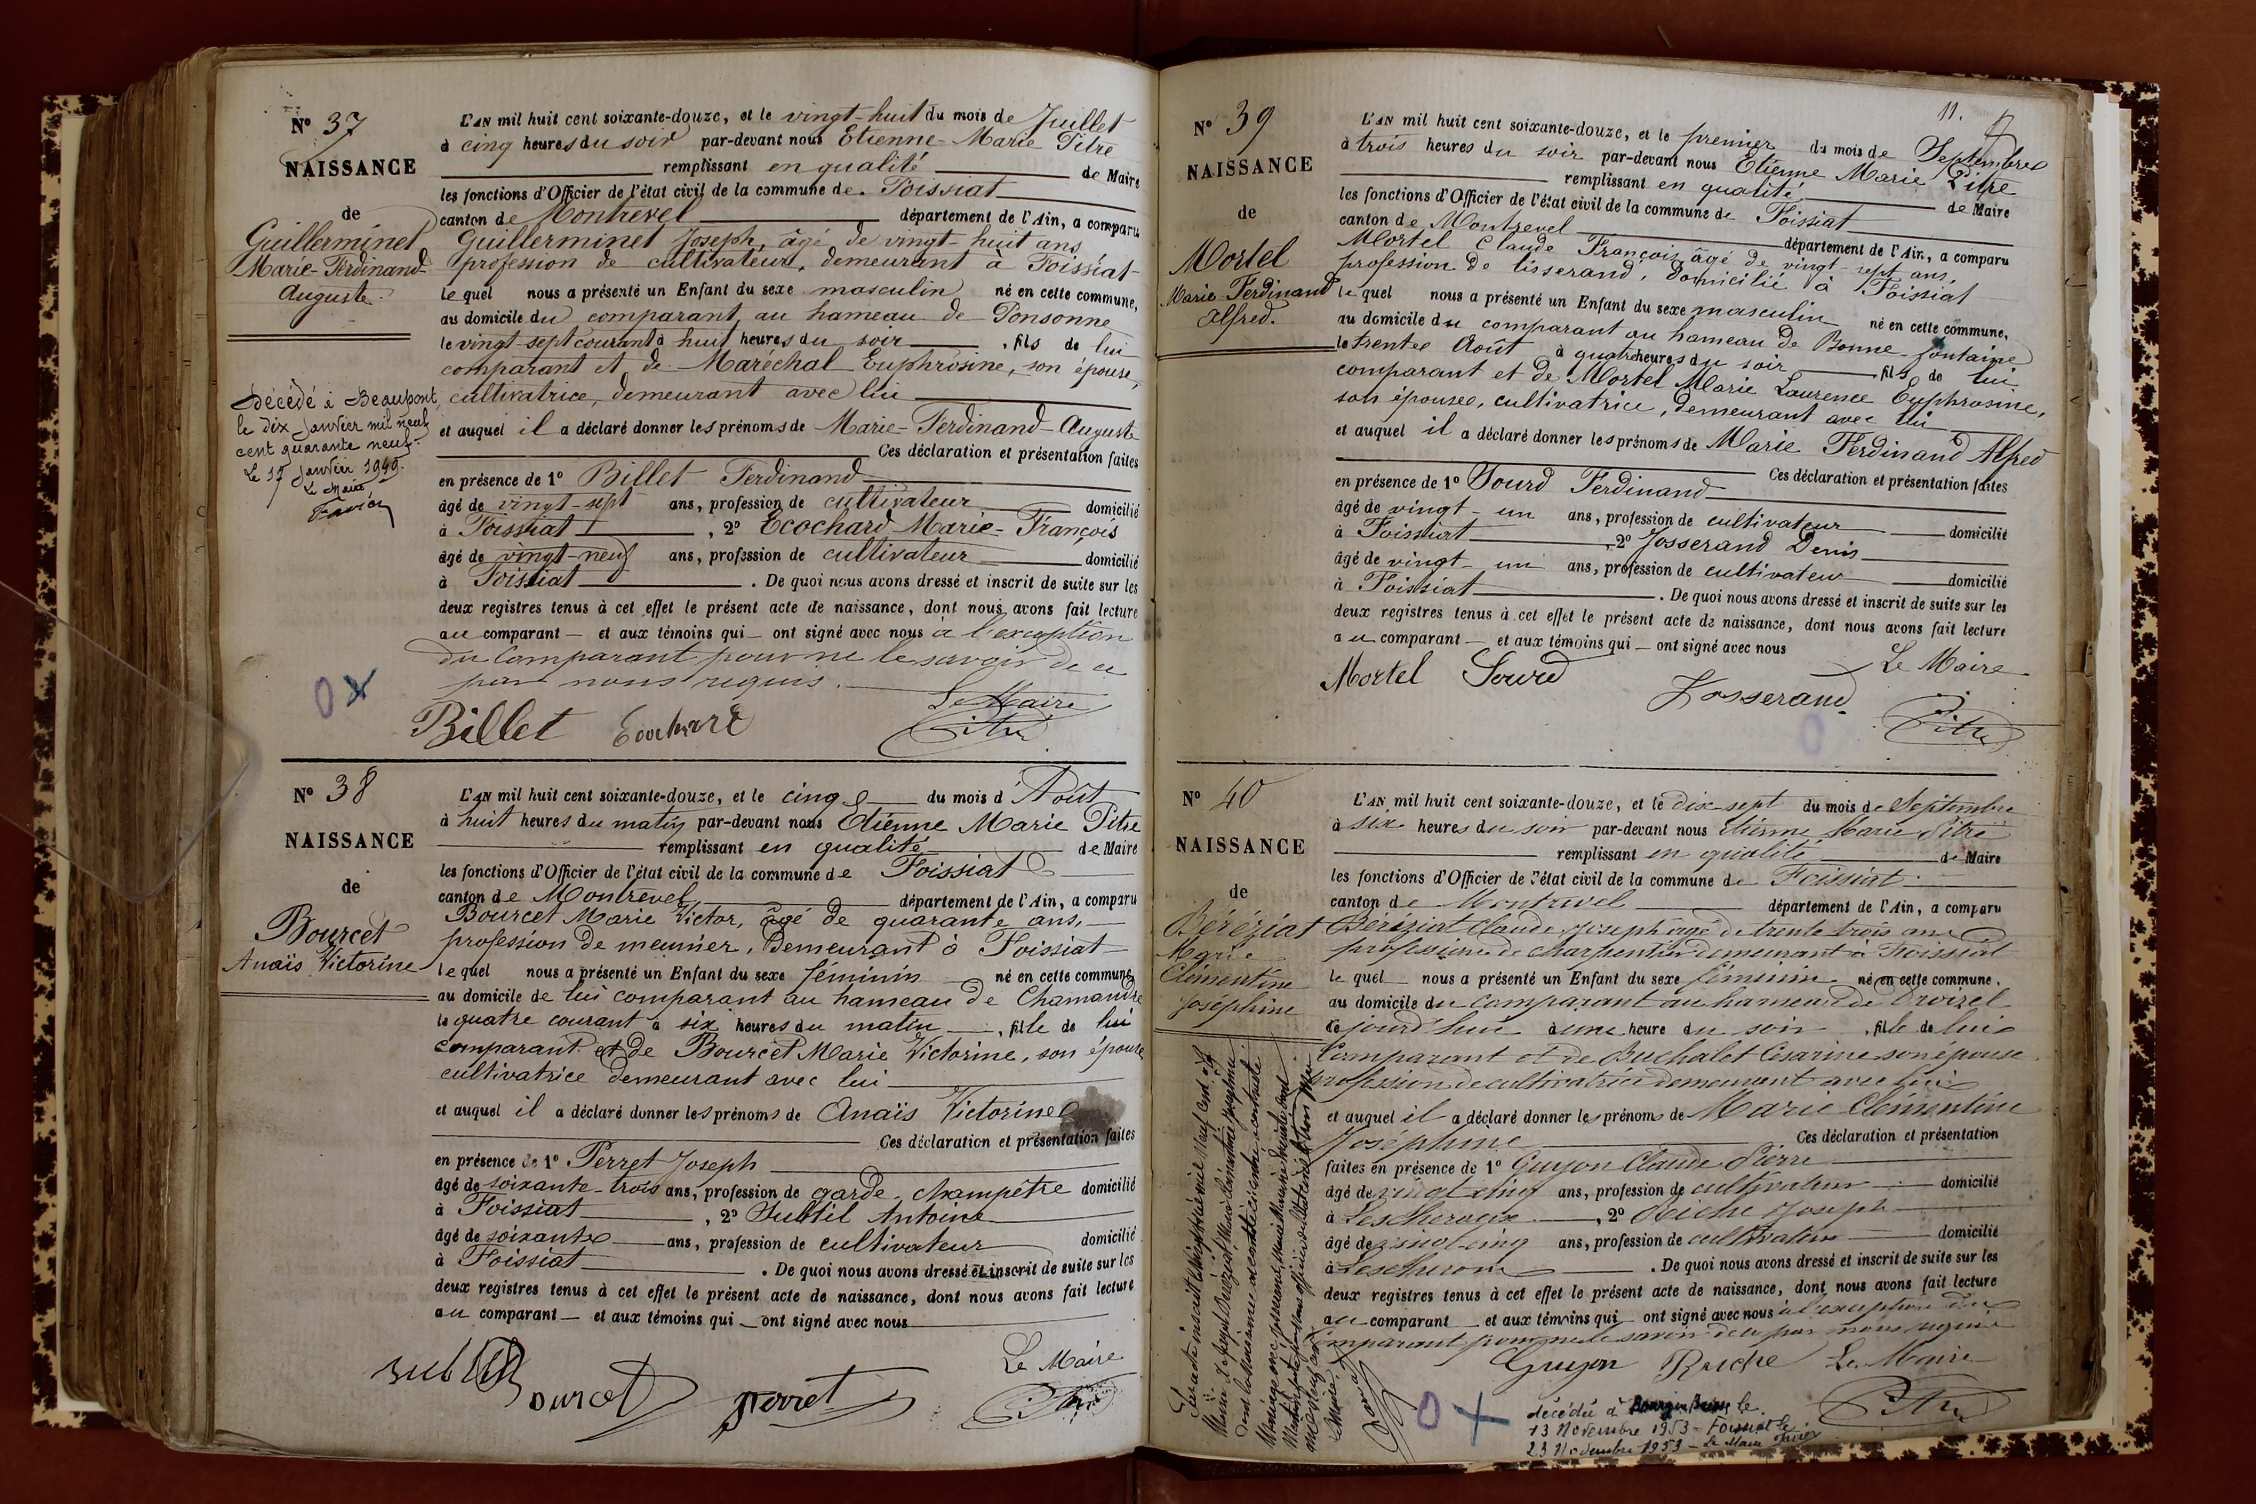 Nº 37
NAISSANCE
de
Guillerminet
Marie-Ferdinand-
Auguste.
Décédé à Beaupont,
le dix Janvier mil neuf
cent quarante neuf.
Le 17 Janvier 1949.
Le Maire
L'AN mil huit cent soixante-douze, et le vingt-huit du mois de Juillet
à cinq heures du soir par-devant nous Etienne-Marie Pitre
remplissant en qualité de Maire
les fonctions d'Officier de l'état civil de la commune de Foissiat
canton de Montrevel département de l'Ain, a comparu
Guillerminet Joseph, âgé de vingt-huit ans
profession de cultivateur, demeurant à Foissiat
lequel nous a présenté un Enfant du sexe masculin né en cette commune,
au domicile du comparant, au hameau de Ponsonne
le vingt-sept courant à huit heures du soir, fils de lui
comparant et de Maréchal Euphrosine, son épouse,
cultivatrice, demeurant avec lui
et auquel il a déclaré donner les prénoms de Marie-Ferdinand-Auguste
Ces déclaration et présentation faites
en présence de 1º Billet Ferdinand
âgé de vingt-sept ans, profession de cultivateur domicilié
à Foissiat, 2º Ecochard Marie-François
âgé de vingt-neuf ans, profession de cultivateur domicilié
à Foissiat. De quoi nous avons dressé et inscrit de suite sur les
deux registres tenus à cet effet le présent acte de naissance, dont nous avons fait lecture
au comparant — et aux témoins qui — ont signé avec nous à l'exception
du comparant pour ne le savoir de ce
par nous requis.
Le Maire
Billet Ecochard Pitre
0 x
Nº 38
NAISSANCE
de
Bourcet
Anaïs Victorine
L'AN mil huit cent soixante-douze, et le cinq du mois d'Août
à huit heures du matin par-devant nous Etienne Marie Pitre
remplissant en qualité de Maire
les fonctions d'Officier de l'état civil de la commune de Foissiat
canton de Montrevel département de l'Ain, a comparu
Bourcet Marie Victor, âgé de quarante ans,
profession de meunier, demeurant à Foissiat
lequel nous a présenté un Enfant du sexe féminin né en cette commune
au domicile de lui comparant au hameau de Chamandre
le quatre courant à six heures du matin, fille de lui
comparant et de Bourcet Marie Victorine, son épouse
cultivatrice demeurant avec lui
et auquel il a déclaré donner les prénoms de Anaïs Victorine
Ces déclaration et présentation faites
en présence de 1º Perret Joseph
âgé de soixante-trois ans, profession de garde champêtre domicilié
à Foissiat, 2º Subtil Antoine
âgé de soixante ans, profession de cultivateur domicilié
à Foissiat. De quoi nous avons dressé et inscrit de suite sur les
deux registres tenus à cet effet le présent acte de naissance, dont nous avons fait lecture
au comparant — et aux témoins qui — ont signé avec nous
Le Maire
Subtil Bourcet perret Pitre
11.
Nº 39
NAISSANCE
de
Mortel
Marie Ferdinand
Alfred.
L'AN mil huit cent soixante-douze, et le premier du mois de Septembre
à trois heures du soir par-devant nous Etienne Marie Pitre
remplissant en qualité de Maire
les fonctions d'Officier de l'état civil de la commune de Foissiat
canton de Montrevel département de l'Ain, a comparu
Mortel Claude François, âgé de vingt-sept ans,
profession de tisserand, domicilié à Foissiat
lequel nous a présenté un Enfant du sexe masculin né en cette commune,
au domicile du comparant au hameau de Bonne-fontaine
le trente Août à quatre heures du soir fils de lui
comparant et de Mortel Marie Laurence Euphrosine,
son épouse, cultivatrice, demeurant avec lui
et auquel il a déclaré donner les prénoms de Marie Ferdinand Alfred
Ces déclaration et présentation faites
en présence de 1º Sourd Ferdinand
âgé de vingt-un ans, profession de cultivateur domicilié
à Foissiat, 2º Josserand Denis
âgé de vingt-un ans, profession de cultivateur domicilié
à Foissiat. De quoi nous avons dressé et inscrit de suite sur les
deux registres tenus à cet effet le présent acte de naissance, dont nous avons fait lecture
au comparant — et aux témoins qui — ont signé avec nous
Le Maire
Mortel Sourd Josserand Pitre
0
Nº 40
NAISSANCE
de
Béréziat
Marie
Clémentine
Joséphine
L'AN mil huit cent soixante-douze, et le dix-sept du mois de Septembre
à six heures du soir par-devant nous Etienne Marie Pitre
remplissant en qualité de Maire
les fonctions d'Officier de l'état civil de la commune de Foissiat
canton de Montrevel département de l'Ain, a comparu
Béréziat Claude Joseph âgé de trente trois ans
profession de charpentier demeurant à Foissiat
lequel nous a présenté un Enfant du sexe féminin né en cette commune,
au domicile du comparant au hameau de
ce jourd'hui à une heure du soir, fille de lui
Comparant et de Buchalet Césarine son épouse
profession de cultivatrice demeurant avec lui
et auquel il a déclaré donner les prénoms de Marie Clémentine
Joséphine Ces déclaration et présentation
faites en présence de 1º Guyon Claude Pierre
âgé de vingt cinq ans, profession de cultivateur domicilié
à Lescheroux, 2º Riche Joseph
âgé de vingt-cinq ans, profession de cultivateur domicilié
à Lescheroux. De quoi nous avons dressé et inscrit de suite sur les
deux registres tenus à cet effet le présent acte de naissance, dont nous avons fait lecture
au comparant — et aux témoins qui — ont signé avec nous à l'exception du
comparant pour ne le savoir de ce par nous requis
Guyon Riche Le Maire
Pitre
0 +
décédé à le
13 Novembre 1953 - Foissiat le
23 Novembre 1953 - Le Maire